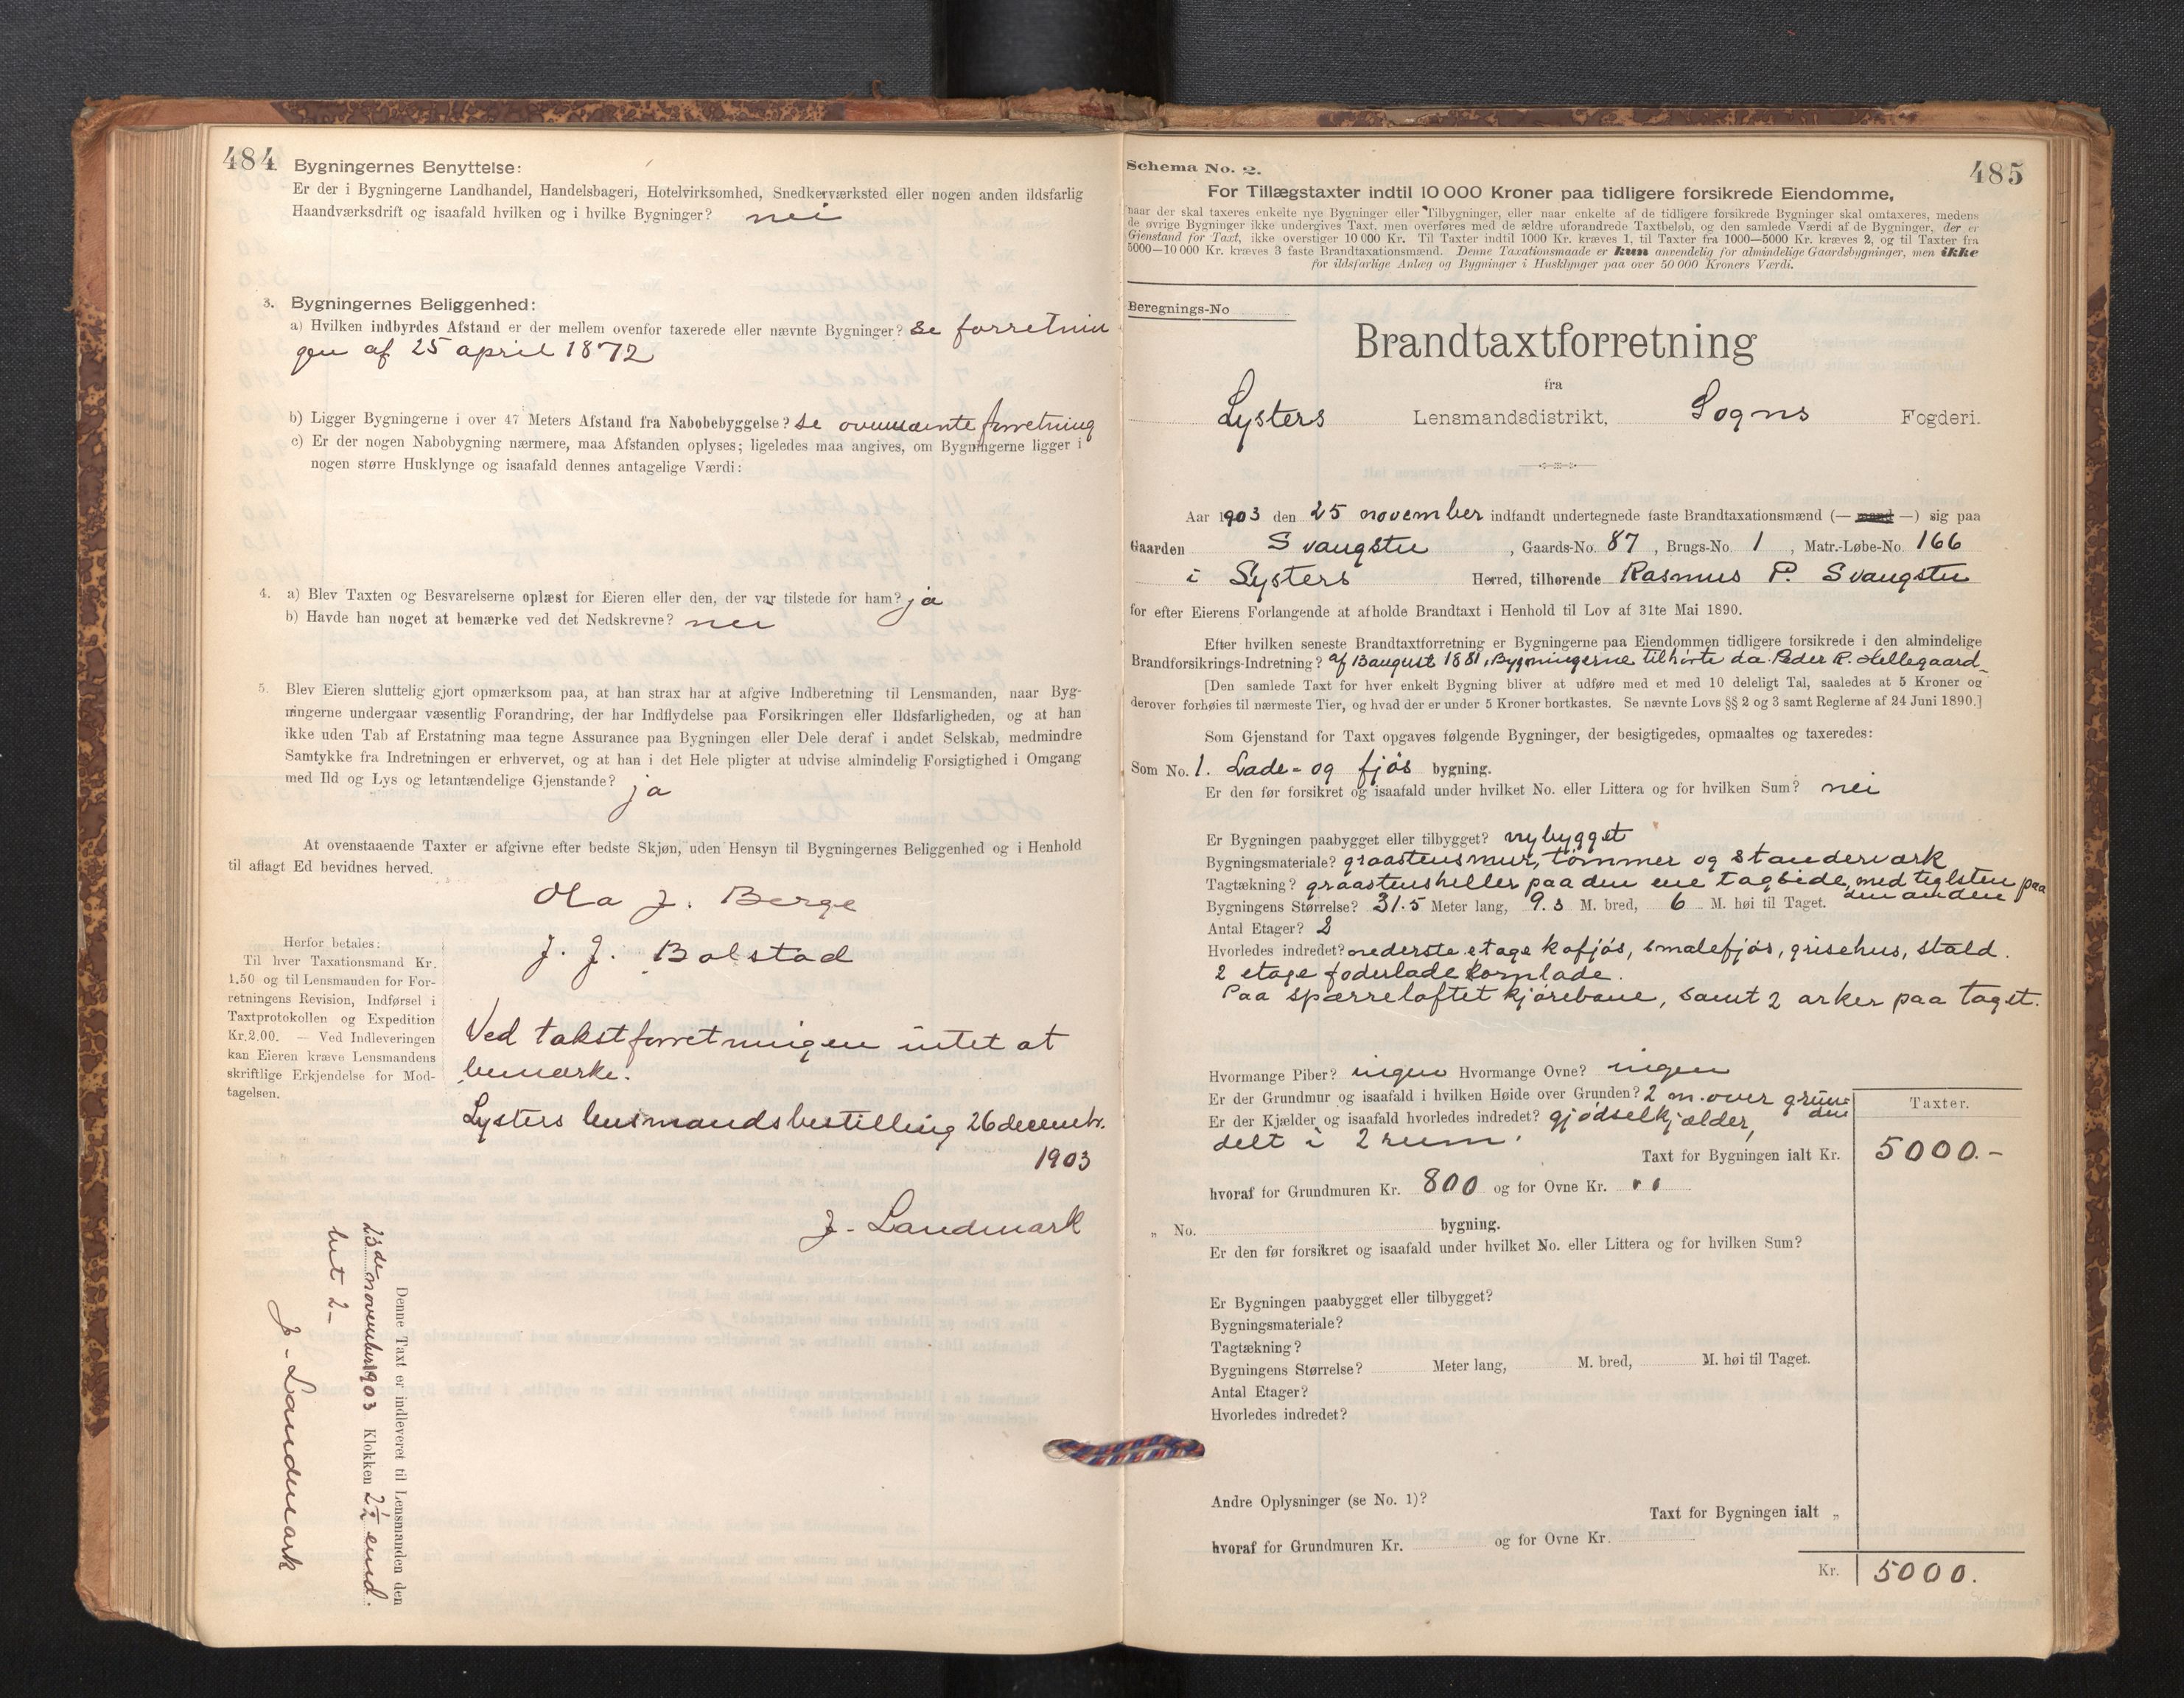 484
Bygningernes Benyttelse:
Er der i Bygningerne Landhandel, Handelsbageri, Hotelvirksomhed, Snedkerværksted eller nogen anden ildsfarlig
Haandværksdrift og isaafald hvilken og i hvilke Bygninger? nei
3. Bygningernes Beliggenhed:
a) Hvilken indbyrdes Afstand er der mellem ovenfor taxerede eller nævnte Bygninger? se forretnin
gen af 25 april 1872
b) Ligger Bygningerne i over 47 Meters Afstand fra Nabobebyggelse? se ovennævnte forretning
c) Er der nogen Nabobygning nærmere, maa Afstanden oplyses; ligeledes maa angives, om Bygningerne ligger i
nogen større Husklynge og isaafald dennes antagelige Værdi:
4. a) Blev Taxten og Besvarelserne oplæst for Eieren eller den, der var tilstede for ham? ja
b) Havde han noget at bemærke ved det Nedskrevne? nei
5. Blev Eieren sluttelig gjort opmærksom paa, at han strax har at afgive Indberetning til Lensmanden, naar Byg-
ningerne undergaar væsentlig Forandring, der har Indflydelse paa Forsikringen eller Ildsfarligheden, og at han
ikke uden Tab af Erstatning maa tegne Assurance paa Bygningen eller Dele deraf i andet Selskab, medmindre
Samtykke fra Indretningen er erhvervet, og at han i det Hele pligter at udvise almindelig Forsigtighed i Omgang
med Ild og Lys og letantændelige Gjenstande? ja
At ovenstaaende Taxter er afgivne efter bedste Skjøn, uden Hensyn til Bygningernes Beliggenhed og i Henhold
til aflagt Ed bevidnes herved.
Ola J. Berge
J. J. Bolstad
Herfor betales:
Til hver Taxationsmand Kr.
1.50 og til Lensmanden for For-
retningens Revision, Indførsel i
Taxtprotokollen og Expedition
Kr. 2.00. — Ved Indleveringen
kan Eieren kræve Lensmandens
skriftlige Erkjendelse for Mod-
tagelsen.
Ved takstforretningen intet at
bemærke.
Lysters lensmandsbestilling 26 decembr.
1903
J. Landmark
Denne Taxt er indleveret til Lensmanden den
november 1903 Klokken 2½ emd.
J. Landmark
485
Schema No. 2.
For Tillægstaxter indtil 10 000 Kroner paa tidligere forsikrede Eiendomme,
naar der skal taxeres enkelte nye Bygninger eller Tilbygninger, eller naar enkelte af de tidligere forsikrede Bygninger skal omtaxeres, medens
de øvrige Bygninger ikke undergives Taxt, men overføres med de ældre uforandrede Taxtbeløb, og den samlede Værdi af de Bygninger, der er
Gjenstand for Taxt, ikke overstiger 10 000 Kr. Til Taxter indtil 1000 Kr. kræves 1, til Taxter fra 1000—5000 Kr. kræves 2, og til Taxter fra
5000—10 000 Kr. kræves 3 faste Brandtaxationsmænd. Denne Taxationsmaade er kun anvendelig for almindelige Gaardsbygninger, men ikke
for ildsfarlige Anlæg og Bygninger i Husklynger paa over 50 000 Kroners Værdi.
Beregnings-No
Brandtaxtforretning
fra
Lysters Lensmandsdistrikt, Sogns Fogderi.
Aar 1903 den 25 november indfandt undertegnede faste Brandtaxationsmænd (— mand —) sig paa
Gaarden Svangstu, Gaards-No. 87, Brugs-No. 1, Matr.-Løbe-No. 166
i Lysters Herred, tilhørende Rasmus P. Svangstu
for efter Eierens Forlangende at afholde Brandtaxt i Henhold til Lov af 31te Mai 1890.
Efter hvilken seneste Brandtaxtforretning er Bygningerne paa Eiendommen tidligere forsikrede i den almindelige
Brandforsikrings-Indretning? af 13 august 1881, Bygningerne tilhörte da Peder R. Hellegaard
[Den samlede Taxt for hver enkelt Bygning bliver at udføre med et med 10 deleligt Tal, saaledes at 5 Kroner og
derover forhøies til nærmeste Tier, og hvad der er under 5 Kroner bortkastes. Se nævnte Lovs §§ 2 og 3 samt Reglerne af 24 Juni 1890.]
Som Gjenstand for Taxt opgaves følgende Bygninger, der besigtigedes, opmaaltes og taxeredes:
Som No. 1. Lade- og fjös bygning.
Er den før forsikret og isaafald under hvilket No. eller Littera og for hvilken Sum? nei
Er Bygningen paabygget eller tilbygget? nybygget
Bygningsmateriale? graastensmur, tömmer og standerværk
Tagtækning? graastensheller paa den ene tagside, med teglsten paa
den anden
Bygningens Størrelse? 31.5 Meter lang, 9.3 M. bred, 6 M. høi til Taget.
Antal Etager? 2
Hvorledes indredet? nederste etage kofjös, smalefjös, grisehus, stald.
2 etage foderlade kornlade.
Paa sperreloftet kjörebane, samt 2 arker paa taget.
Hvormange Piber? ingen Hvormange Ovne? ingen
Er der Grundmur og isaafald i hvilken Høide over Grunden? 2 m. over grun-
den
Er der Kjælder og isaafald hvorledes indredet? gjödselkjælder,
delt i 2 rum.
Taxter.
Taxt for Bygningen ialt Kr. 5000.-
hvoraf for Grundmuren Kr. 800 og for Ovne Kr. " "
„ No. bygning.
Er den før forsikret og isaafald under hvilket No. eller Littera og for hvilken Sum?
Er Bygningen paabygget eller tilbygget?
Bygningsmateriale?
Tagtækning?
Bygningens Størrelse? Meter lang, M. bred, M. høi til Taget.
Antal Etager?
Hvorledes indredet?
Andre Oplysninger (se No. 1)?
Taxt for Bygningen ialt „
hvoraf for Grundmuren Kr. og for Ovne Kr.
Kr. 5000.